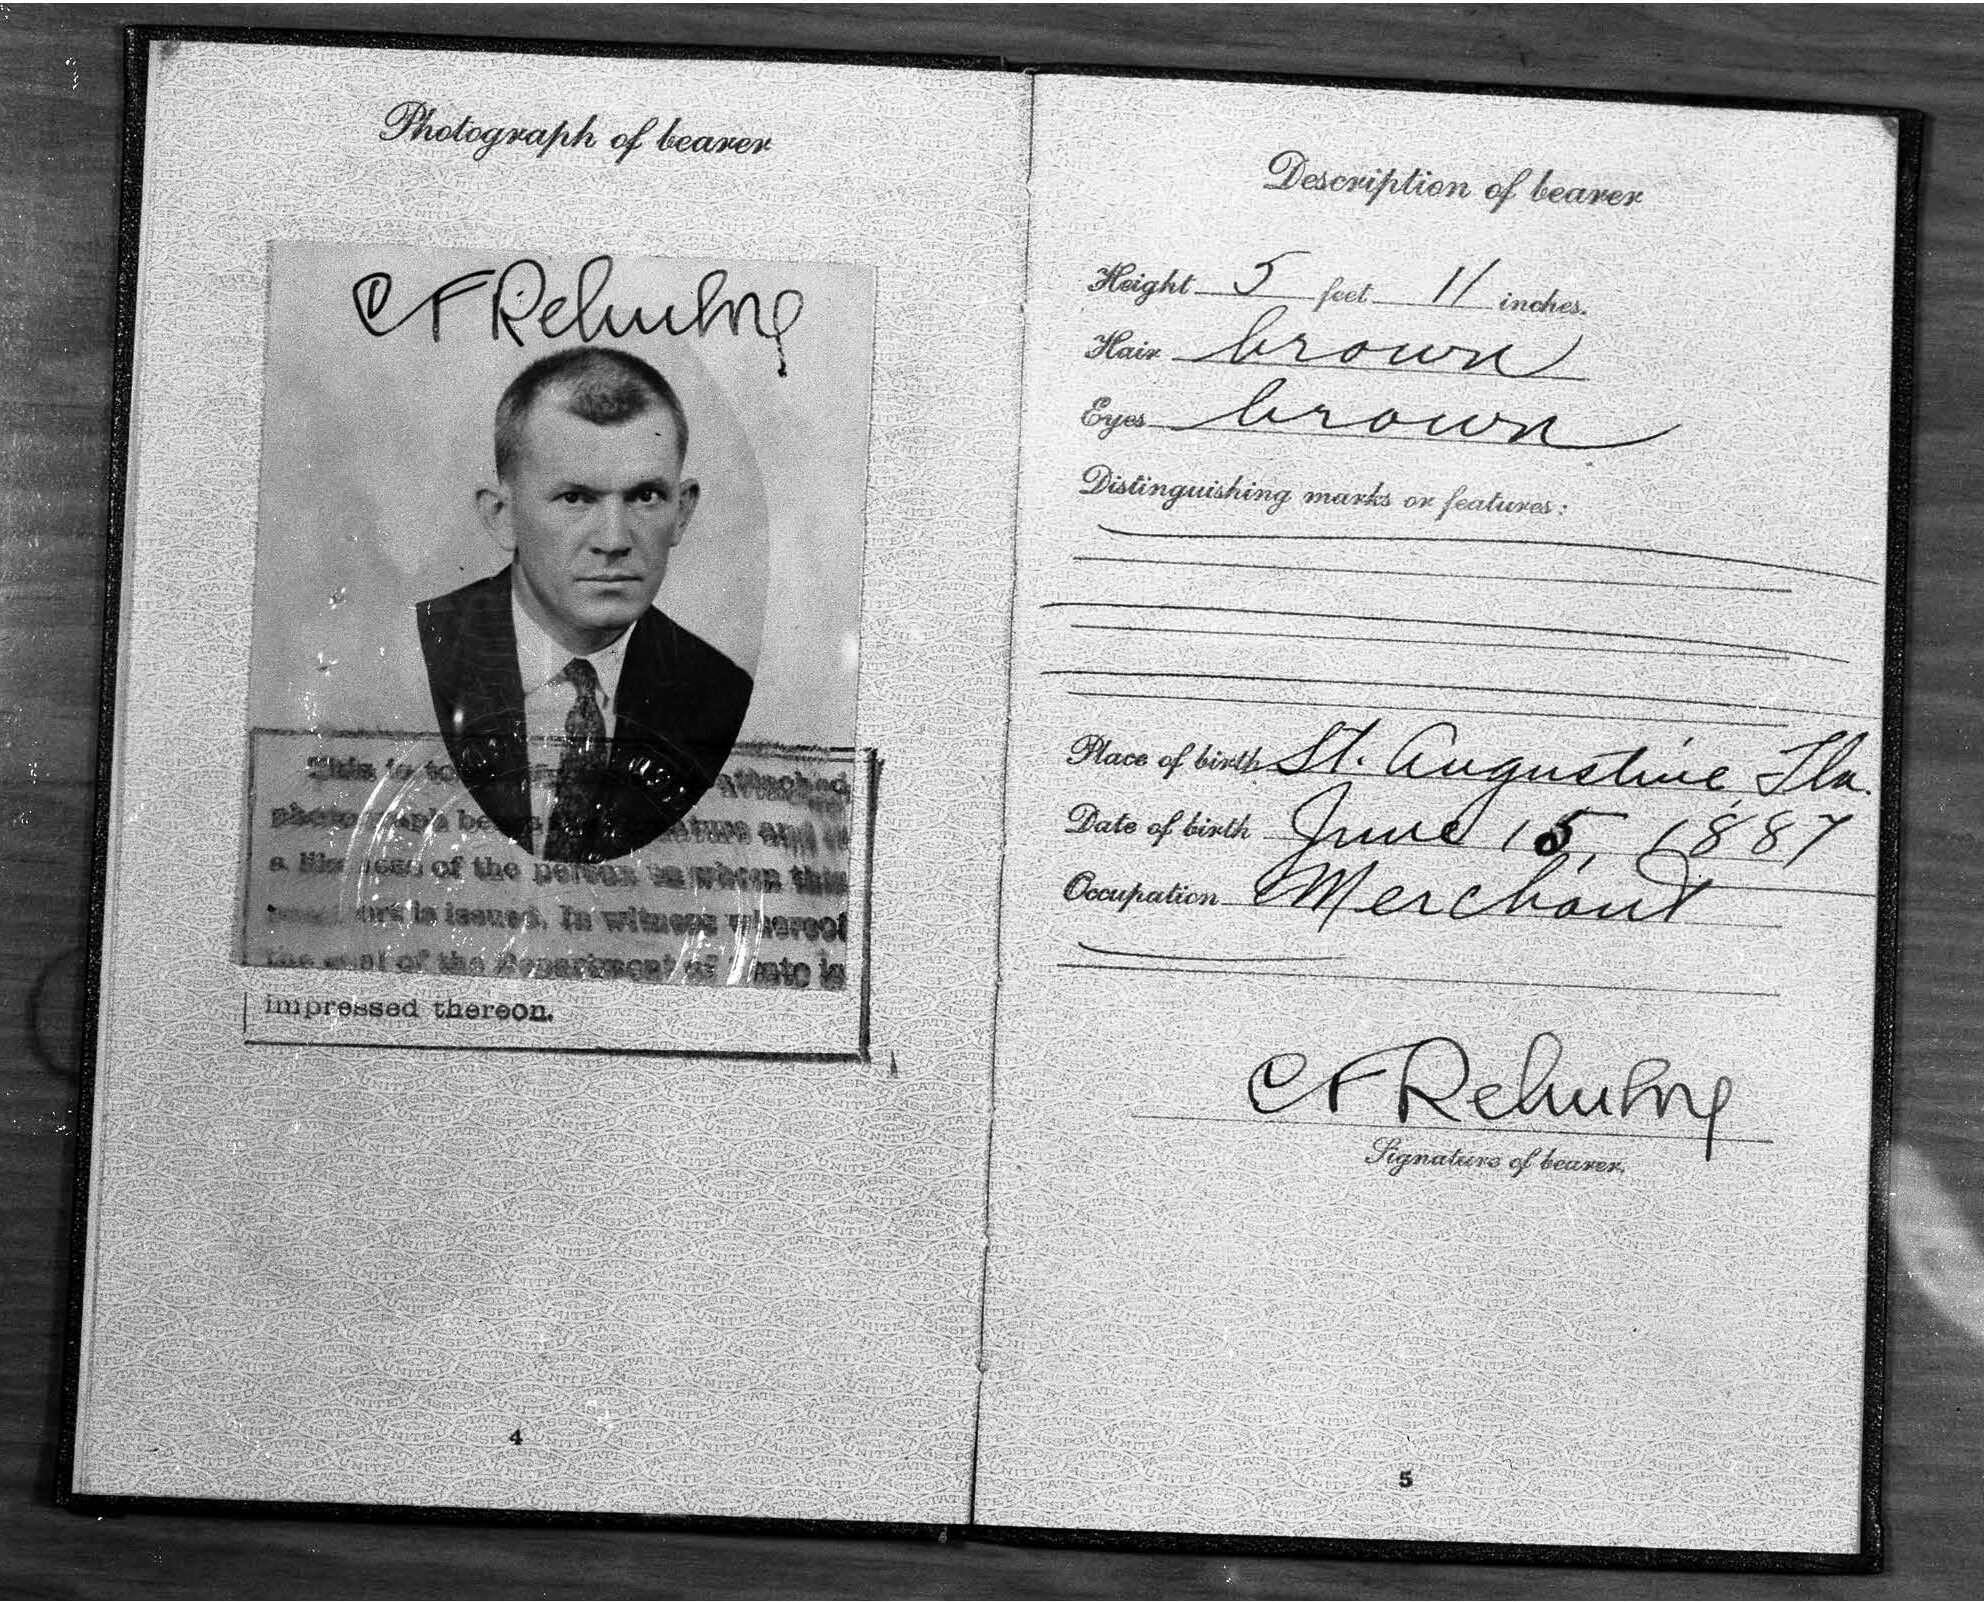 Photograph of bearer
C F
This is to attached
photograph bears signature and is
a likeness of the person to whom this
is issued. In witness whereof
the seal of the Department of State is
impressed thereon.
4
Description of bearer
Height 5 feet 11 inches.
Hair brown
Eyes brown
Distinguishing marks or features:
Place of birth St. Augustine, Fla.
Date of birth June 15, 1887
Occupation Merchant
C F
Signature of bearer.
5